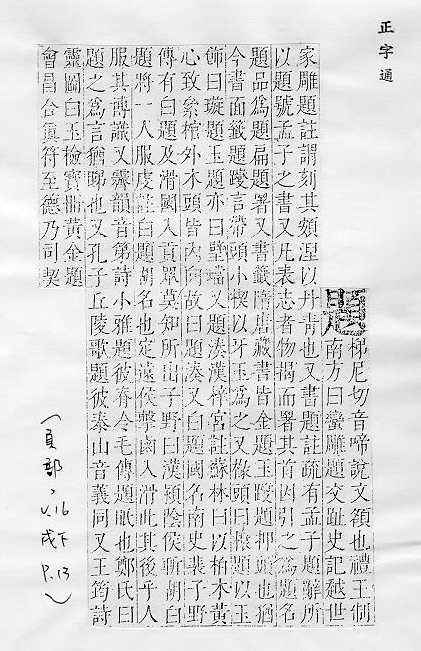 正字通
題
梯尼切音啼說文額也禮王制
南方曰蠻雕題交趾史記越世
家雕題註謂刻其額涅以丹青也又書題註疏有孟子題辭所
以題號孟子之書又凡表志者物揭而署其首因引之為題名
題品為題扁題署又書籤隋唐藏書皆金題玉躞題押頭也猶
今書面籤題躞言帶頭小楔以牙玉為之又椽頭曰榱題以玉
飾曰璇題玉題亦曰璧璫又題湊漢梓宮註蘇林曰以柏木黃
心致絫棺外木頭皆內向故曰題湊又白題國名南史裴子野
傳有白題及滑國入貢眾莫知所出子野曰漢潁陰侯斬胡白
題將一人服虔註白題胡名也定遠侯擊鹵入滑此其後乎人
服其博識又霽韻音第詩小雅題彼脊令毛傳題眂也鄭氏曰
題之為言猶睇也又孔子丘陵歌題彼泰山音義同又王筠詩
靈圖白玉檢寶冊黃金題
會昌合符至德乃司契
(頁部、v.16 戌下 p.13)